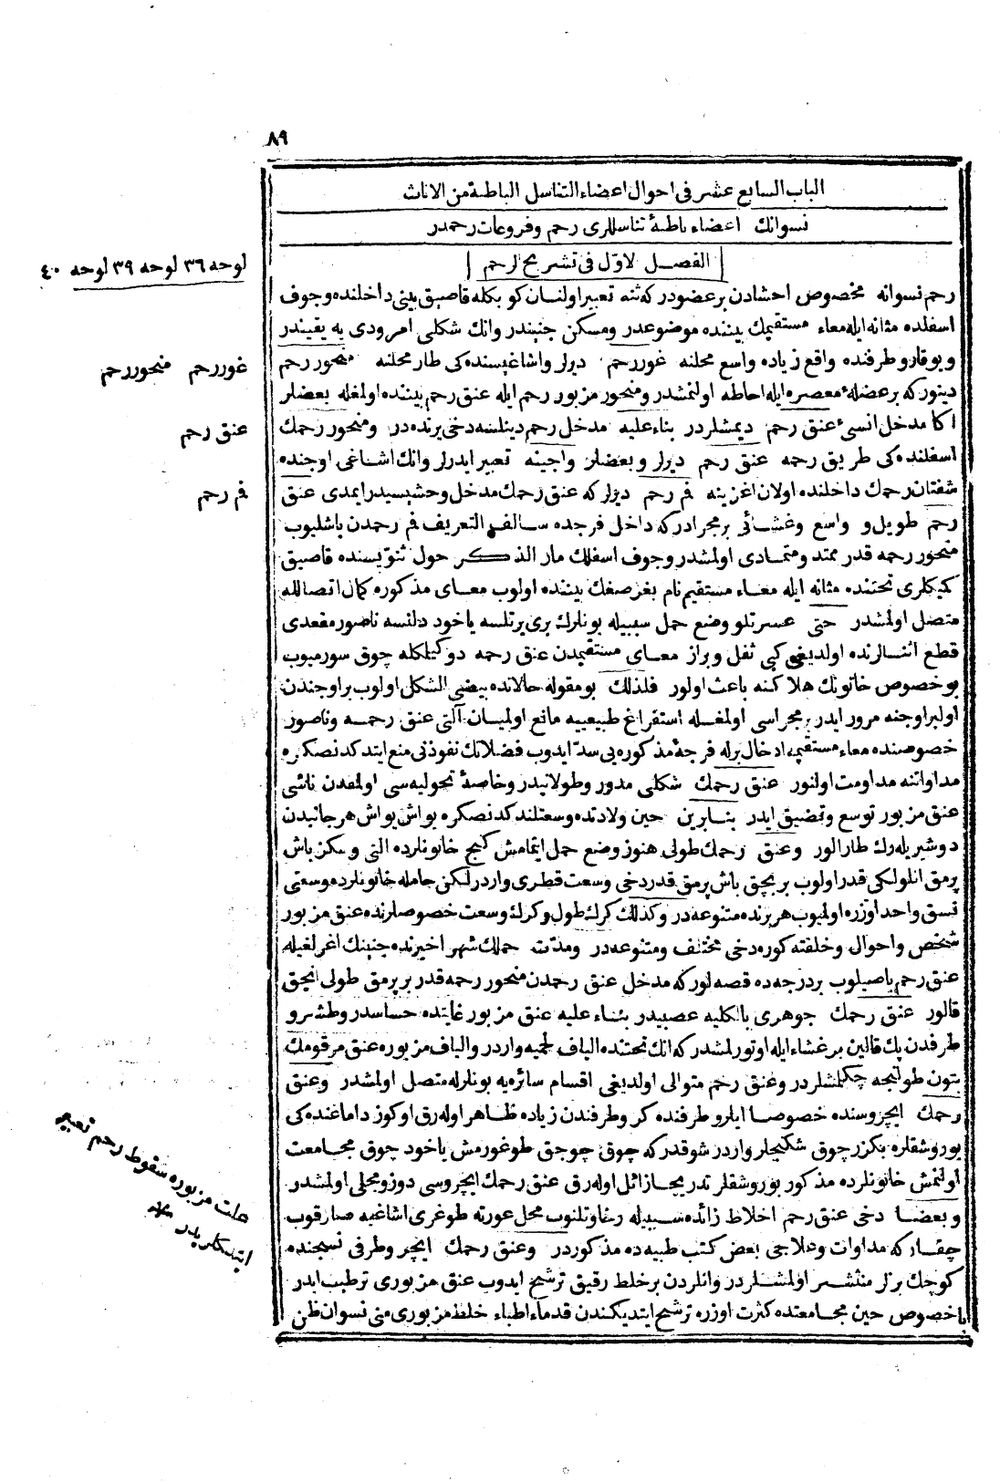 ٨٩
الباب السابع عشر فى احوال اعضاء التناسل الباطنة من الاناث
نسوانك اعضاء باطنهٔ تناسللرى رحم وفروعات رحمدر
الفصل لاول فى تشريح الرحم
لوحه ٣٦ لوحه ٣٩ لوحه ٤٠
رحم نسوانه مخصوص احشادن بر عضودر كه ثنه تعبير اولنان كو بكله قاصيق بينى داخلنده وجوف
اسفلده مثانه ايله معاء مستقيمك بيننده موضوعدر ومسكن جنيندر وانك شكلى امرودى يه يقيندر
ويوقارو طرفنده واقع زياده واسع محلنه غور رحم ديرلر واشاغيسنده كى طار محلنه منحور رحم
غور رحم منحور رحم
دينور كه بر عضلهٔ معصره ايله احاطه اولنمشدر ومنحور مزبور رحم ايله عنق رحم بيننده اولمغله بعضلر
اكا مدخل انسىٔ عنق رحم ديمشلردر بناء عليه مدخل رحم دينلسه دخى يرنده در ومنحور رحمك
عنق رحم
اسفلنده كى طريق رحمه عنق رحم ديرلر وبعضلر واجينه تعبير ايدرلر وانك اشاغى اوجنده
شفتان رحمك داخلنده اولان اغزينه فم رحم ديرلر كه عنق رحمك مدخل وحشيسيدر ايمدى عنق
فم رحم
رحم طويل و واسع وغشائى بر مجرادر كه داخل فرجده سالف التعريف فم رحمدن باشليوب
منحور رحمه قدر ممتد ومتمادى اولمشدر وجوف اسفلك مار الذكر حول ثنويسنده قاصيق
كميكلرى تحتنده مثانه ايله معاء مستقيم نام بغرصغك بيننده اولوب معاى مذكوره كمال اتصالله
متصل اولمشدر حتى عسرتلو وضع حمل سببيله بونلرك برى يرتلسه ياخود دلنسه ناصور مقعدى
قطع اثنالرنده اولديغى كبى ثفل وبراز معاى مستقيمدن عنق رحمه دوكيلكله چوق سورميوب
بو خصوص خاتونك هلاكنه باعث اولور فلذلك بو مقوله حالاتده بيضى الشكل اولوب بر اوجندن
اولبر اوجنه مرور ايدر بر مجراسى اولمغله استفراغ طبيعيه مانع اولميان آلتى عنق رحمه وناصور
خصوصنده معاء مستقيمه ادخال برله فرجهٔ مذكوره يى سد ايدوب فضلاتك نفوذنى منع ايتدكدنصكره
مداواتنه مداومت اولنور عنق رحمك شكلى مدور وطولانيدر وخاصهٔ تحوليه سى اولمقدن ناشى
عنق مزبور توسع وتضيق ايدر بنابرين حين ولادتده وسعتلندكدنصكره يواش يواش هر جانبدن
دوشيريله رك طارالور وعنق رحمك طولى هنوز وضع حمل ايتمامش كنج خاتونلرده التى وسكز باش
پرمق انلولكى قدر اولوب بر بچق باش پرمق قدر دخى وسعت قطرى واردر لكن حامله خاتونلرده وسعتى
نسق واحد اوزره اولميوب هر برنده متنوعه در وكذلك كرك طول وكرك وسعت خصوصلرنده عنق مزبور
شخص واحوال وخلفته كوره دخى مختلف ومتنوعه در ومدت حملك شهر اخيرنده جنينك اغرلغيله
عنق رحم باصيلوب بر درجه ده قصه لور كه مدخل عنق رحمدن منحور رحمه قدر بر پرمق طولى انجق
قالور عنق رحمك جوهرى بالكليه عصبيدر بناء عليه عنق مزبور غايتده حساسدر وطشرو
طرفدن پك قالين بر غشاء ايله اوتورلمشدر كه انك تحتنده الياف لحميه واردر والياف مزبوره عنق مرقومك
بتون طولنجه چكلمشلردر وعنق رحم متوالى اولديغى اقسام سائره يه بونلرله متصل اولمشدر وعنق
رحمك ايچروسنده خصوصا ايلرو طرفنده كرو طرفندن زياده ظاهر اوله رق اوكوز داماغنده كى
بوروشقلره بكزر چوق شكنجلر واردر شوقدر كه چوق چوجق طوغورمش ياخود چوق مجامعت
اولنمش خاتونلرده مذكور بوروشقلر تدريجا زائل اوله رق عنق رحمك ايچروسى دوز ومجلى اولمشدر
وبعضا دخى عنق رحم اخلاط زائده سببيله رخاوتلنوب محل عورته طوغرى اشاغيه صارقوب
چقار كه مداوات وعلاجى بعض كتب طبيه ده مذكوردر وعنق رحمك ايچرو طرفى نسجنده
كوچك بزلر منتشر اولمشلردر وانلردن بر خلط رقيق ترشح ايدوب عنق مزبورى ترطيب ايدر
باخصوص حين مجامعتده كثرت اوزره ترشح ايتديكندن قدماء اطباء خلط مزبورى منى نسوان ظن
علت مزبوره سقوط رحم تعبير
ايتدكلريدر منه